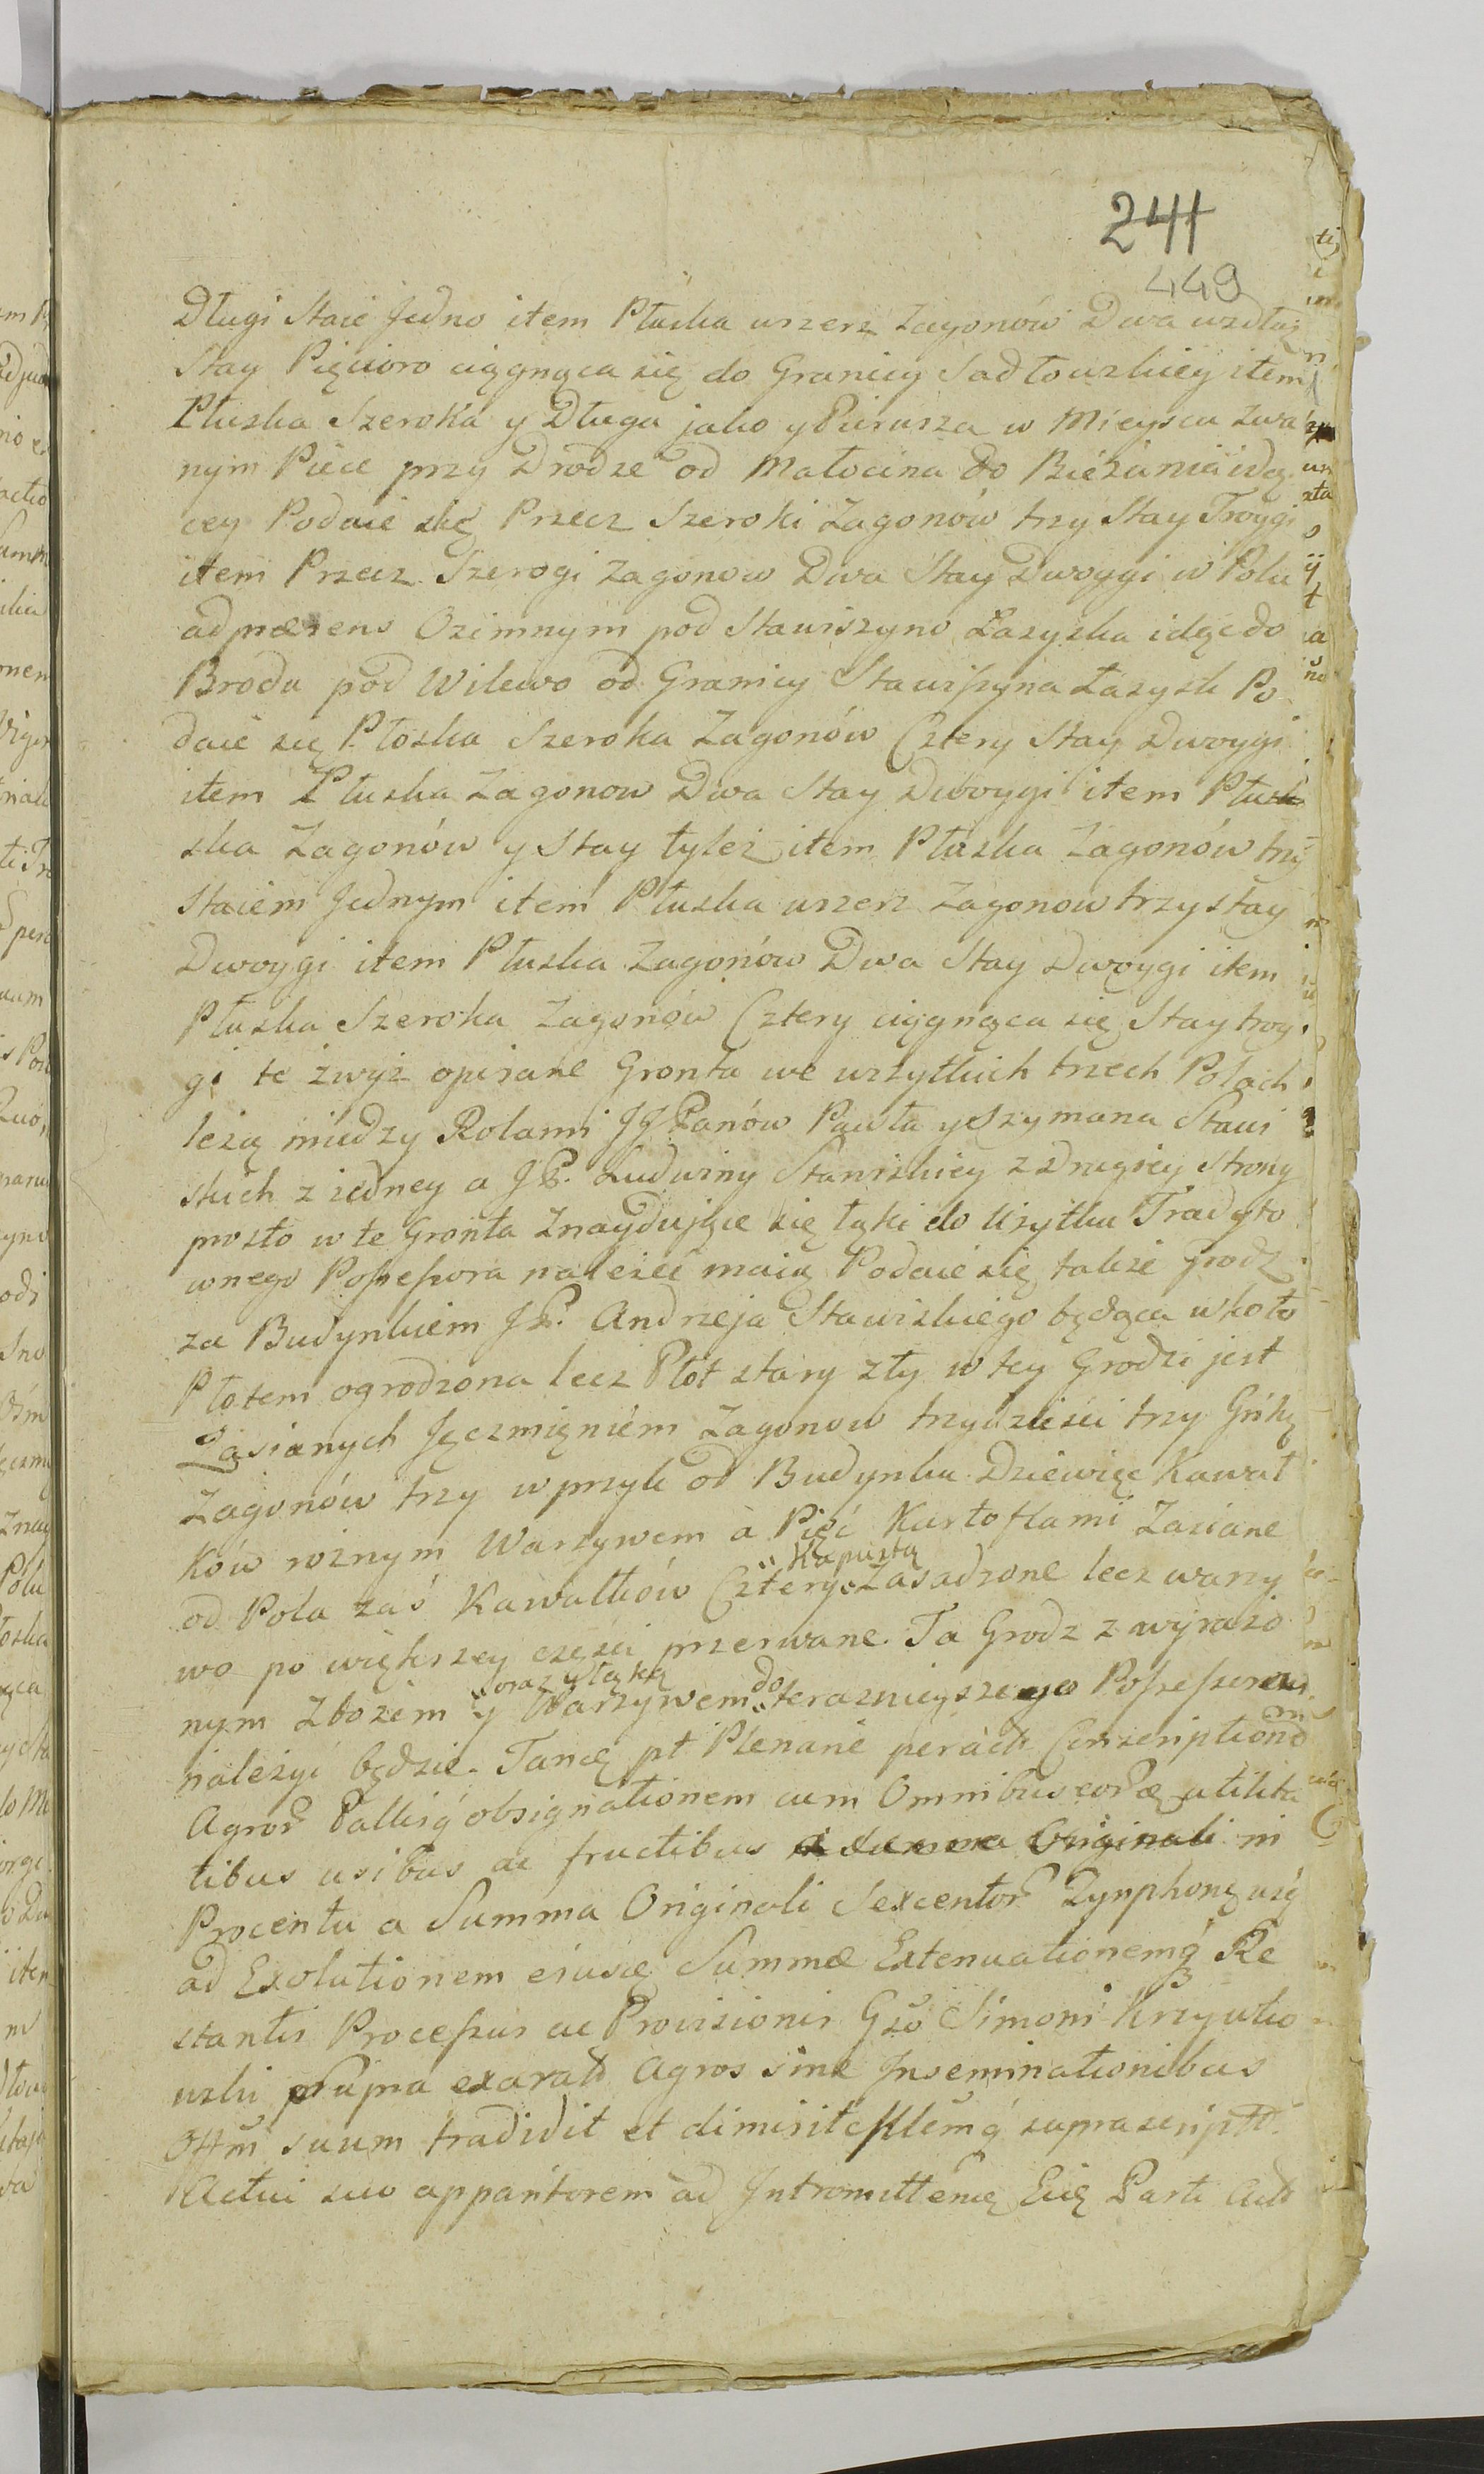 241
449
Długi Staie Jedno item Płuska wszerz Zagonów Dwa wzdłuż
Stay Pięcioro ciągnąca się do Granicy Sadłowskiey item
Płuska Szeroka y Długa jako y Pierwsza w Mieyscu zwa
nym Piece przy Drodze od Małocina do Bieżunia idą
cey Podaie się Przecz Szeroki Zagonów trzy Stay Troygi
item Przecz Szerogi Zagonow Dwa Stay Dwoygi w Polu
ad præsens Ozimnym pod Stawiszyno Łazyska idąc do
Brodu pod Wilewo od Granicy Stawiszyna Łazysk Po
daie się Płoska Szeroka Zagonów Cztery Stay Dwoygi
item Płuska Zagonow Dwa Stay Dwoygi item Płu
ska Zagonów y Stay tyleż item Płuska Zagonów trzy
Staiem Jednym item Płuska wszerz Zagonow trzy stay
Dwoygi item Płuska Zagonów Dwa Stay Dwoygi item
Płuska Szeroka Zagonów Cztery ciągnąca się Stay troy
gi te zwyż opisane Gronta we wszytkich trzech Polach
leżą miedzy Rolami JJPanów Pawła y Szymana Stawi
skich z iedney a JP. Ludwiny Stawiskiey z Drugiey Strony
prosto w te Gronta Znayduiące się łąki do Użytku Tradyto
wnego Possessora należeć maią Podaie się także Grodz
za Budynkiem JP. Andrzeja Stawiskiego będąca wkoło
Płotem ogrodzona lecz Płot stary zły w tey Grodzi jest
Zasianych Jęczmięniem Zagonow trzydzieści trzy Griką
Zagonów trzy w przyk od Budynku Dziewięć Kawał
ków rożnym Warzywem a Pięć Kartoflami Zasiane
od Pola zaś Kawałków Cztery Kapustą Zasadzone lecz warzy
wo po większey części przerwane. Ta Grodz z wyrażo
nym Zbożem oraz y łąką y Warzywem do terazniyszego Possessora
należyć będzie. Tancq pt Plenarie peract Conscriptionem
Agror Palliq obsignationem cum Omnibus eor utilita
tibus usibus ac fructibus a Summa Originali in
Procentu a Summa Originali Sexcentor Zynphonq usq
ad Exolutionem eiusq Summæ Extenuationemq Re
stantis Processus ac Provisionis Gso Simoni Krzywko
wski supra exarat Agros sine Inseminationibus
Offm suum tradidit et dimisit suprascript
Actui suo apparitorem ad Intromitten Parti Act